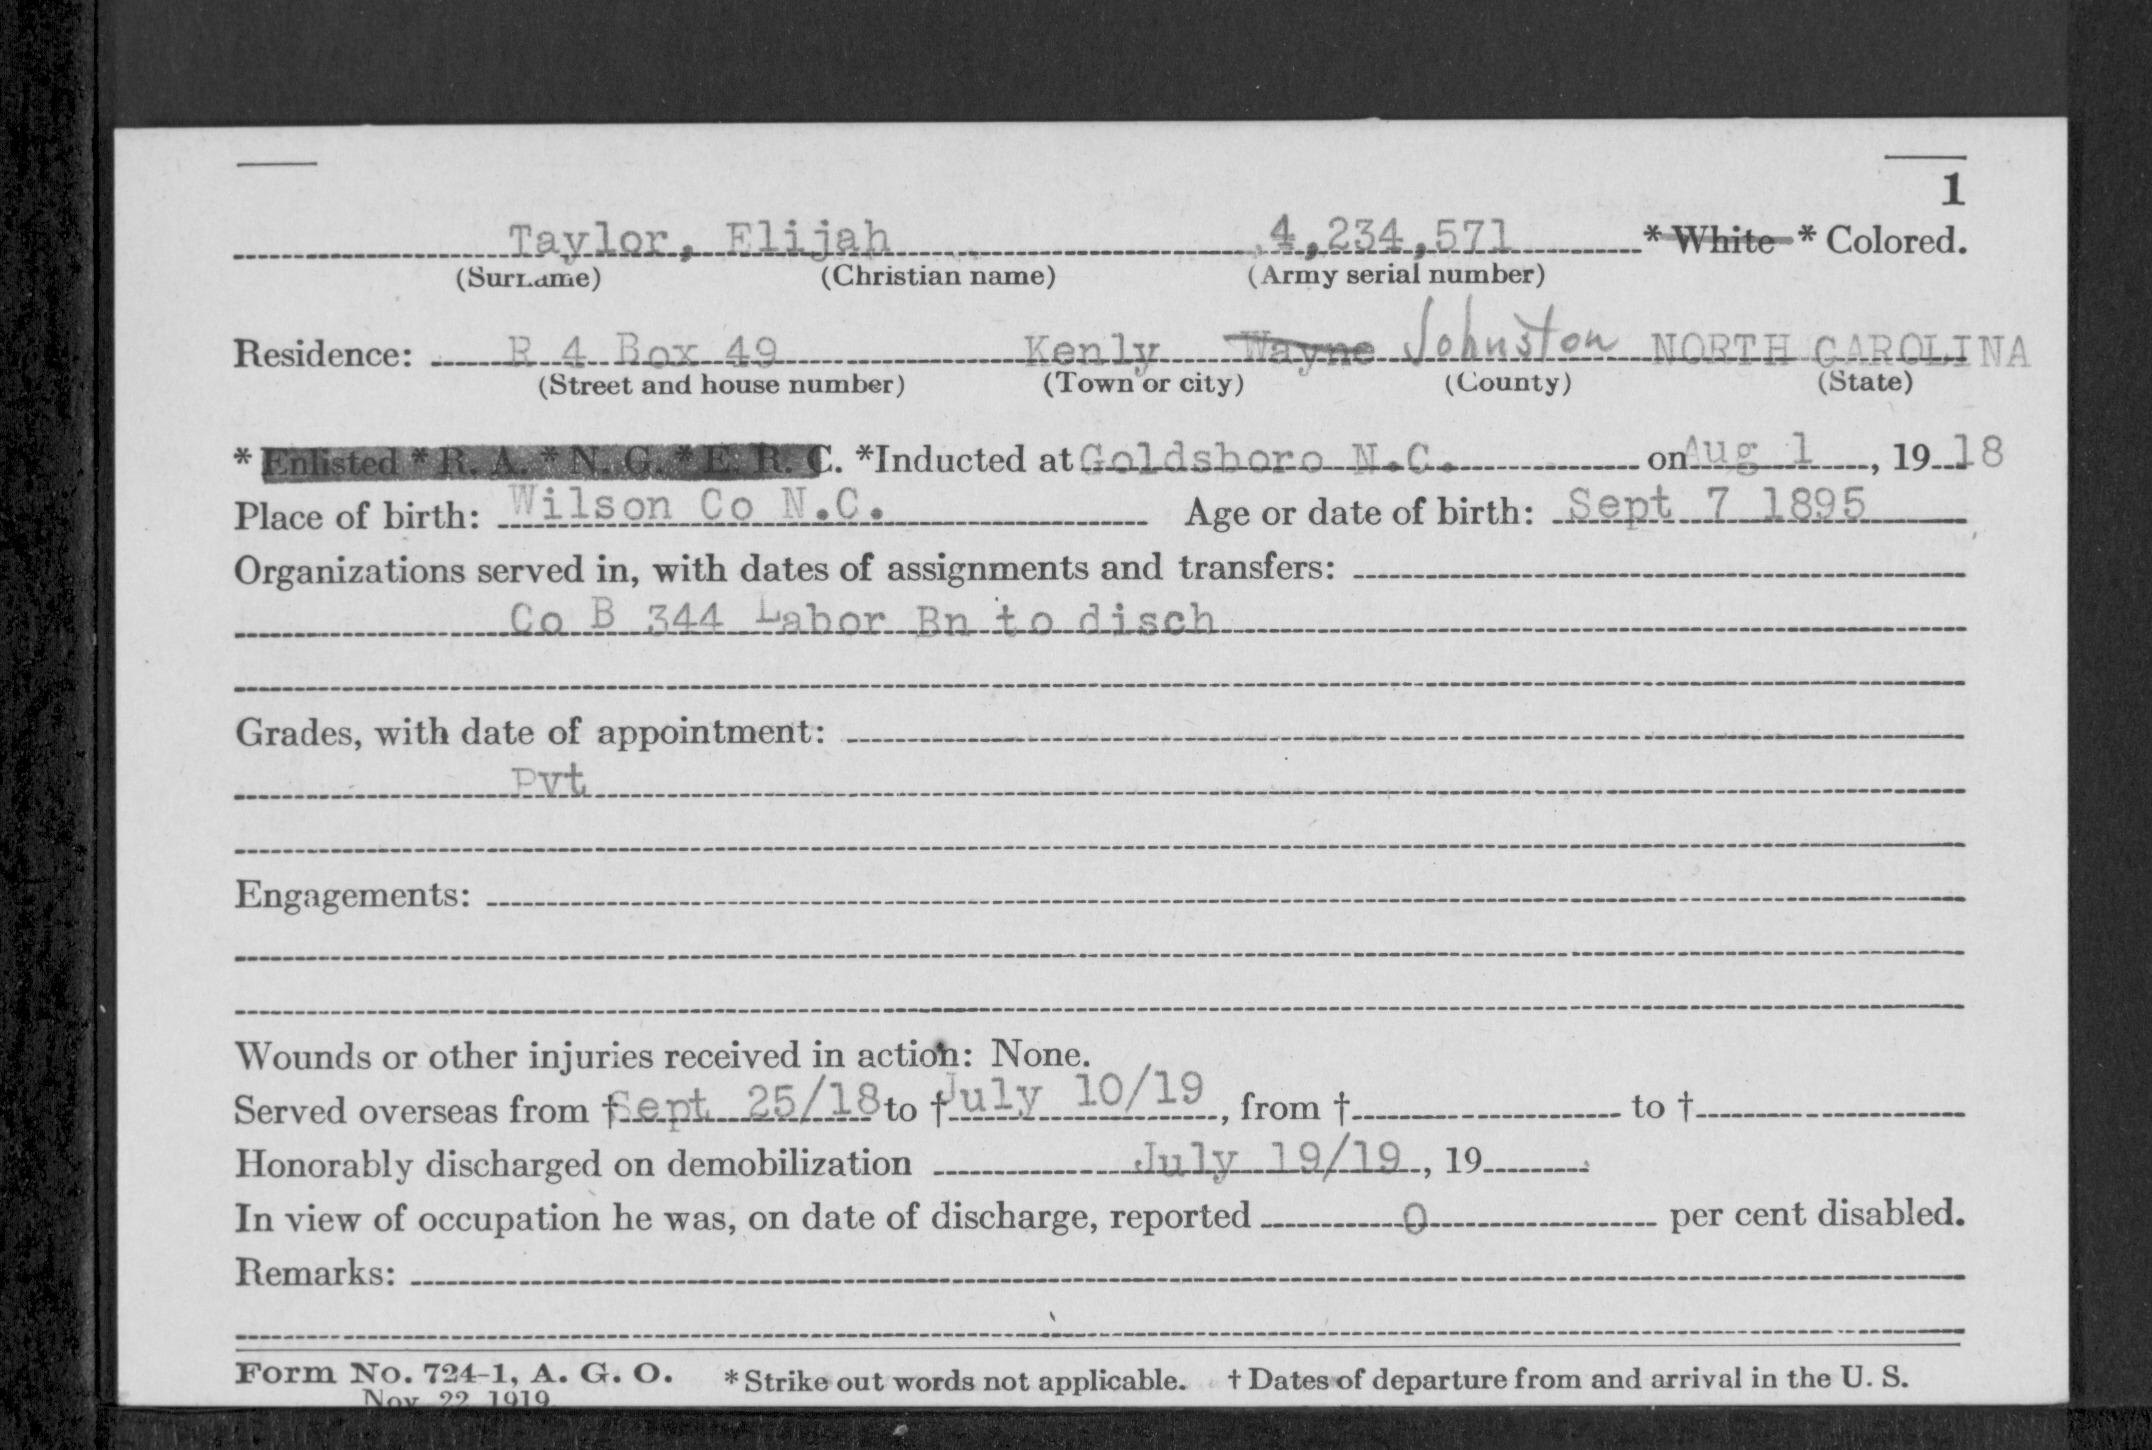 1
Taylor, Elijah 4,234,571 * White * Colored.
(Surname) (Christian name) (Army serial number)
Residence: R 4 Box 49 Kenly Wayne Johnston NORTH CAROLINA
(Street and house number) (Town or city) (County) (State)
* Enlisted * R. A. * N. G. * E. R. C. *Inducted at Goldsboro N.C. on Aug 1, 19 18
Place of birth: Wilson Co N.C. Age or date of birth: Sept 7 1895
Organizations served in, with dates of assignments and transfers:
Co B 344 Labor Bn to disch
Grades, with date of appointment:
Pvt
Engagements:
Wounds or other injuries received in action: None.
Served overseas from † Sept 25/18 to † July 10/19, from † to †
Honorably discharged on demobilization July 19/19, 19
In view of occupation he was, on date of discharge, reported 0 per cent disabled.
Remarks:
Form No. 724-1, A. G. O. * Strike out words not applicable. † Dates of departure from and arrival in the U. S.
Nov. 22 1919